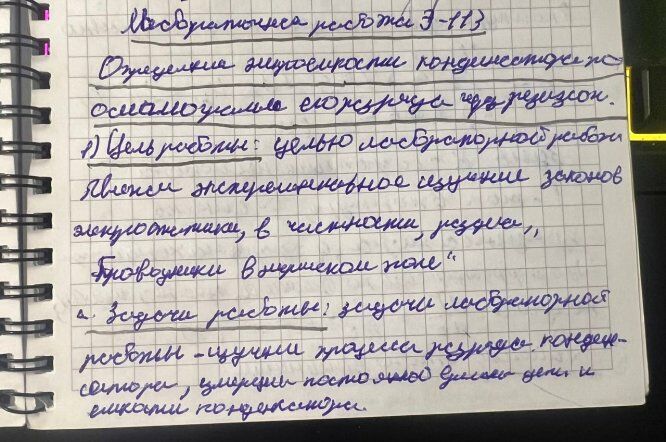 Лабораторная работа Э-113
Определение электроемкости конденсатора по
осциллограмме его разряда через резистор.
1) Цель работы: целью лабораторной работы
является экспериментальное изучение законов
электростатики, в частности, раздела „
Проводники в электрическом поле"
2. Задачи работы: задачи лабораторной
работы - изучение процесса разряда конден-
сатора, измерение постоянной времени цепи и
емкости конденсатора.